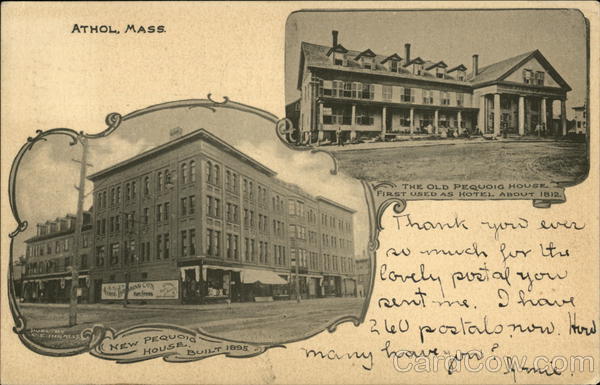 ATHOL, MASS.
THE OLD PEQUOIG HOUSE,
FIRST USED AS HOTEL ABOUT 1812.
Thank you ever
so much for the
lovely postal you
sent me. I have
260 postals now. How
many have you?
NEW PEQUOIG
HOUSE, BUILT 1895.
CardCow.com